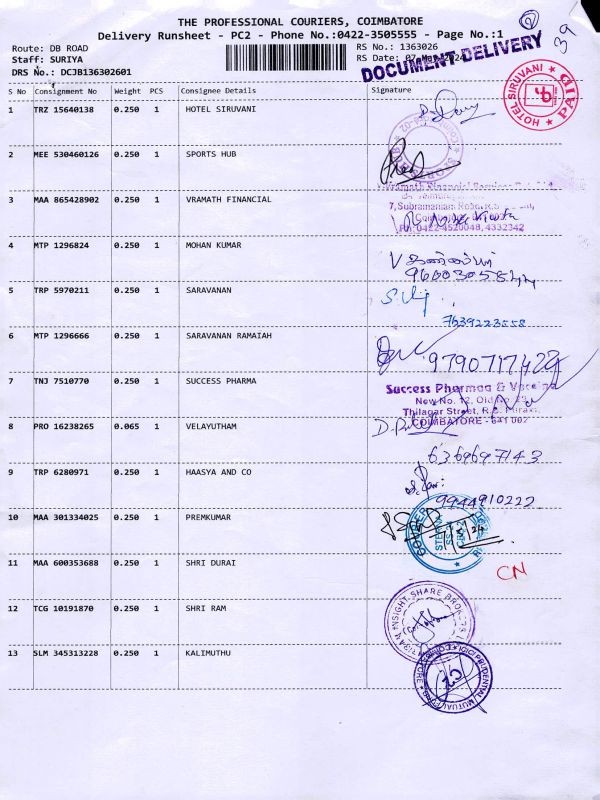 THE PROFESSIONAL COURIERS, COIMBATORE
Delivery Runsheet - PC2 - Phone No.:0422-3505555 - Page No.:1
2
39
Route: DB ROAD
Staff: SURIYA
DRS No.: DCJB136302601
RS No.: 1363026
RS Date: 07-May-2024
DOCUMENT DELIVERY
HOTEL SIRUVANI
S No Consignment No Weight PCS Consignee Details Signature
1 TRZ 15640138 0.250 1 HOTEL SIRUVANI
2 MEE 530460126 0.250 1 SPORTS HUB
3 MAA 865428902 0.250 1 VRAMATH FINANCIAL
Vramath Financial Services
7, Subramaniam Road, R.S.
Ph: 0422-4520048, 4332342
4 MTP 1296824 0.250 1 MOHAN KUMAR
9600305844
5 TRP 5970211 0.250 1 SARAVANAN
7639223558
6 MTP 1296666 0.250 1 SARAVANAN RAMAIAH
9790717422
7 TNJ 7510770 0.250 1 SUCCESS PHARMA
Success Pharmaa &
New No. 12, Old No.
Thilagar Street, R.S.
COIMBATORE - 641 002
8 PRO 16238265 0.065 1 VELAYUTHAM
6369697143
9 TRP 6280971 0.250 1 HAASYA AND CO
9944910222
10 MAA 301334025 0.250 1 PREMKUMAR
11 MAA 600353688 0.250 1 SHRI DURAI
CN
12 TCG 10191870 0.250 1 SHRI RAM
INSIGHT SHARE BROKERS
13 SLM 345313228 0.250 1 KALIMUTHU
ICICI PRUDENTIAL MUTUAL FUND